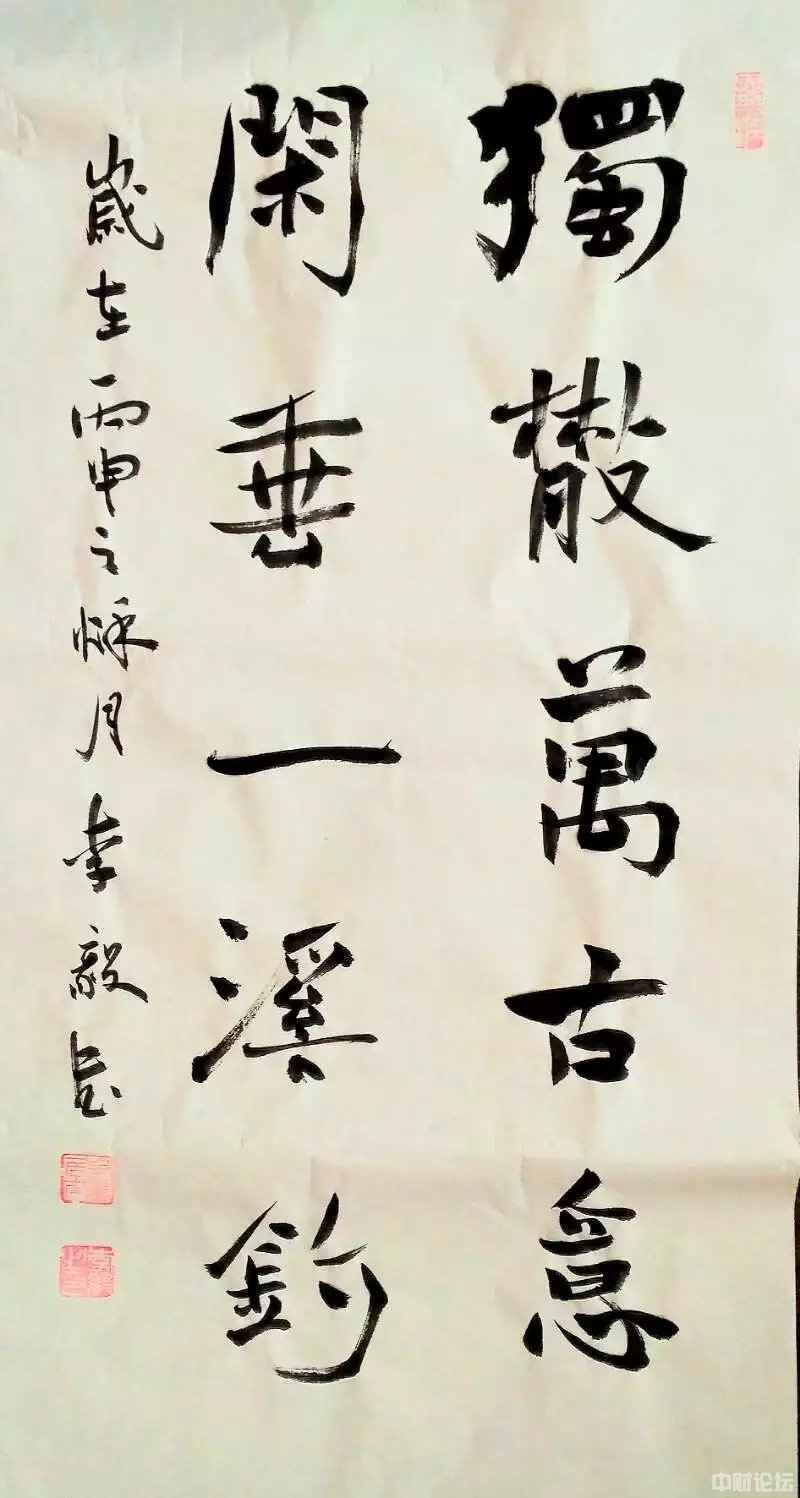 獨散萬古意
閑垂一溪釣
歲在丙申之秌月李毅書
中财论坛